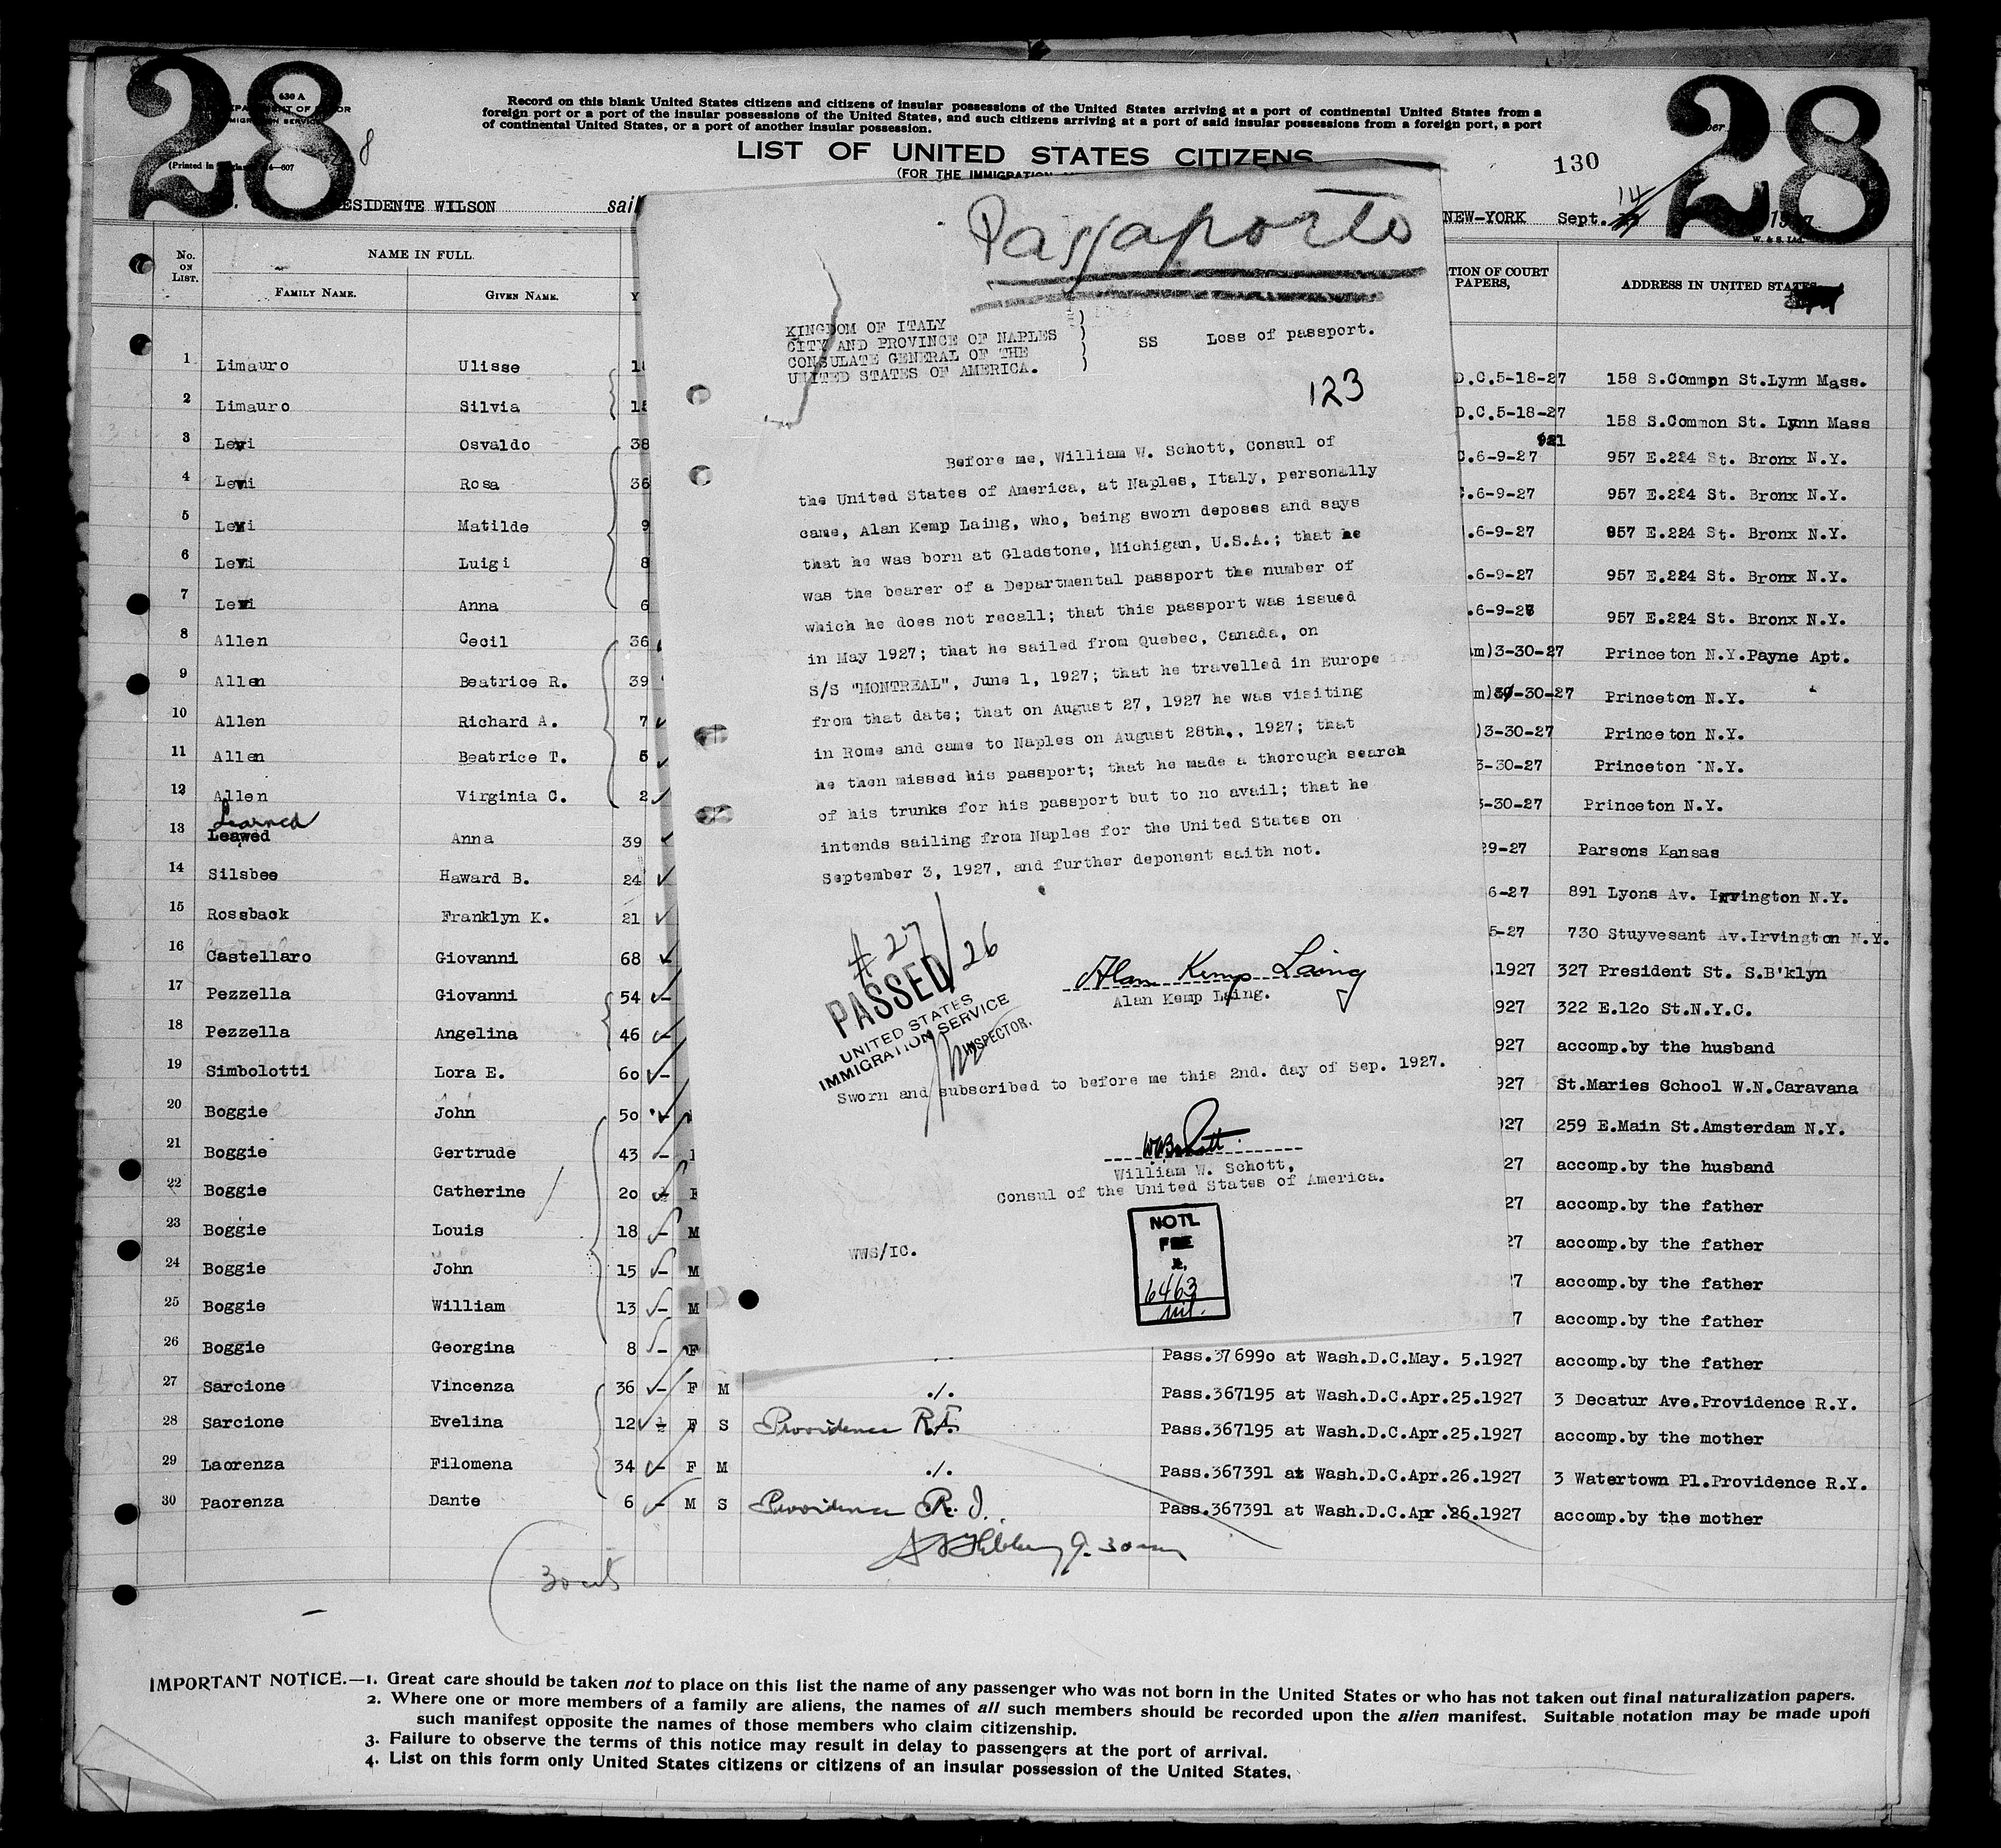 28
28
630 A
(Printed in
8
Record on this blank United States citizens and citizens of insular possessions of the United States arriving at a port of continental United States from a
foreign port or a port of the insular possessions of the United States, and such citizens arriving at a port of said insular possessions from a foreign port, a port
of continental United States, or a port of another insular possession.
LIST OF UNITED STATES CITIZENS
(FOR THE IMMIGRATION
130
ESIDENTE WILSON sail
NEW-YORK Sept. 14
No. ON LIST.
NAME IN FULL
FAMILY NAME. GIVEN NAME. Y
TION OF COURT PAPERS,
ADDRESS IN UNITED STATES
Passaporto
KINGDOM OF ITALY
CITY AND PROVINCE OF NAPLES
CONSULATE GENERAL OF THE
UNITED STATES OF AMERICA.
SS Loss of passport.
123
Before me, William W. Schott, Consul of
the United States of America, at Naples, Italy, personally
came, Alan Kemp Laing, who, being sworn deposes and says
that he was born at Gladstone, Michigan, U.S.A.; that he
was the bearer of a Departmental passport the number of
which he does not recall; that this passport was issued
in May 1927; that he sailed from Quebec, Canada, on
S/S "MONTREAL", June 1, 1927; that he travelled in Europe
from that date; that on August 27, 1927 he was visiting
in Rome and came to Naples on August 28th,, 1927; that
he then missed his passport; that he made a thorough search
of his trunks for his passport but to no avail; that he
intends sailing from Naples for the United States on
September 3, 1927, and further deponent saith not.
#27/26
PASSED
UNITED STATES
IMMIGRATION SERVICE
INSPECTOR.
Alan Kemp Laing
Alan Kemp Laing.
Sworn and subscribed to before me this 2nd. day of Sep. 1927.
William W. Schott,
Consul of the United States of America.
WWS/IC.
6463
1 Limauro Ulisse D.C.5-18-27 158 S.Common St.Lynn Mass.
2 Limauro Silvia D.C.5-18-27 158 S.Common St. Lynn Mass
921
3 Levi Osvaldo 38 C.6-9-27 957 E.224 St. Bronx N.Y.
4 Levi Rosa 36 .6-9-27 957 E.224 St. Bronx N.Y.
5 Levi Matilde 9 .6-9-27 957 E.224 St. Bronx N.Y.
6 Levi Luigi 8 .6-9-27 957 E.224 St. Bronx N.Y.
7 Levi Anna 6 .6-9-27 957 E.224 St. Bronx N.Y.
8 Allen Cecil 36 m)3-30-27 Princeton N.Y.Payne Apt.
9 Allen Beatrice R. 39 m)3-30-27 Princeton N.Y.
10 Allen Richard A. 7 )3-30-27 Princeton N.Y.
11 Allen Beatrice T. 5 3-30-27 Princeton N.Y.
12 Allen Virginia C. 2 3-30-27 Princeton N.Y.
Learned
13 Leawed Anna 39 29-27 Parsons Kansas
14 Silsbee Haward B. 24 6-27 891 Lyons Av. Irvington N.Y.
15 Rossback Franklyn K. 21 5-27 730 Stuyvesant Av.Irvington N.Y.
16 Castellaro Giovanni 68 .1927 327 President St. S.B'klyn
17 Pezzella Giovanni 54 927 322 E.12o St.N.Y.C.
18 Pezzella Angelina 46 927 accomp.by the husband
19 Simbolotti Lora E. 6o 927 St.Maries School W.N.Caravana
20 Boggie John 50 27 259 E.Main St.Amsterdam N.Y.
21 Boggie Gertrude 43 27 accomp.by the husband
22 Boggie Catherine 20 F 27 accomp.by the father
23 Boggie Louis 18 M 27 accomp.by the father
24 Boggie John 15 M 7 accomp.by the father
25 Boggie William 13 M 7 accomp.by the father
26 Boggie Georgina 8 F Pass.37699o at Wash.D.C.May. 5.1927 accomp.by the father
27 Sarcione Vincenza 36 F M ./. Pass.367195 at Wash.D.C.Apr.25.1927 3 Decatur Ave.Providence R.Y.
28 Sarcione Evelina 12 F S Providence R.I. Pass.367195 at Wash.D.C.Apr.25.1927 accomp.by the mother
29 Laorenza Filomena 34 F M ./. Pass.367391 at Wash.D.C.Apr.26.1927 3 Watertown Pl.Providence R.Y.
30 Paorenza Dante 6 M S Providence R.I. Pass.367391 at Wash.D.C.Apr.26.1927 accomp.by the mother
IMPORTANT NOTICE.—1. Great care should be taken not to place on this list the name of any passenger who was not born in the United States or who has not taken out final naturalization papers.
2. Where one or more members of a family are aliens, the names of all such members should be recorded upon the alien manifest. Suitable notation may be made upon
such manifest opposite the names of those members who claim citizenship.
3. Failure to observe the terms of this notice may result in delay to passengers at the port of arrival.
4. List on this form only United States citizens or citizens of an insular possession of the United States.